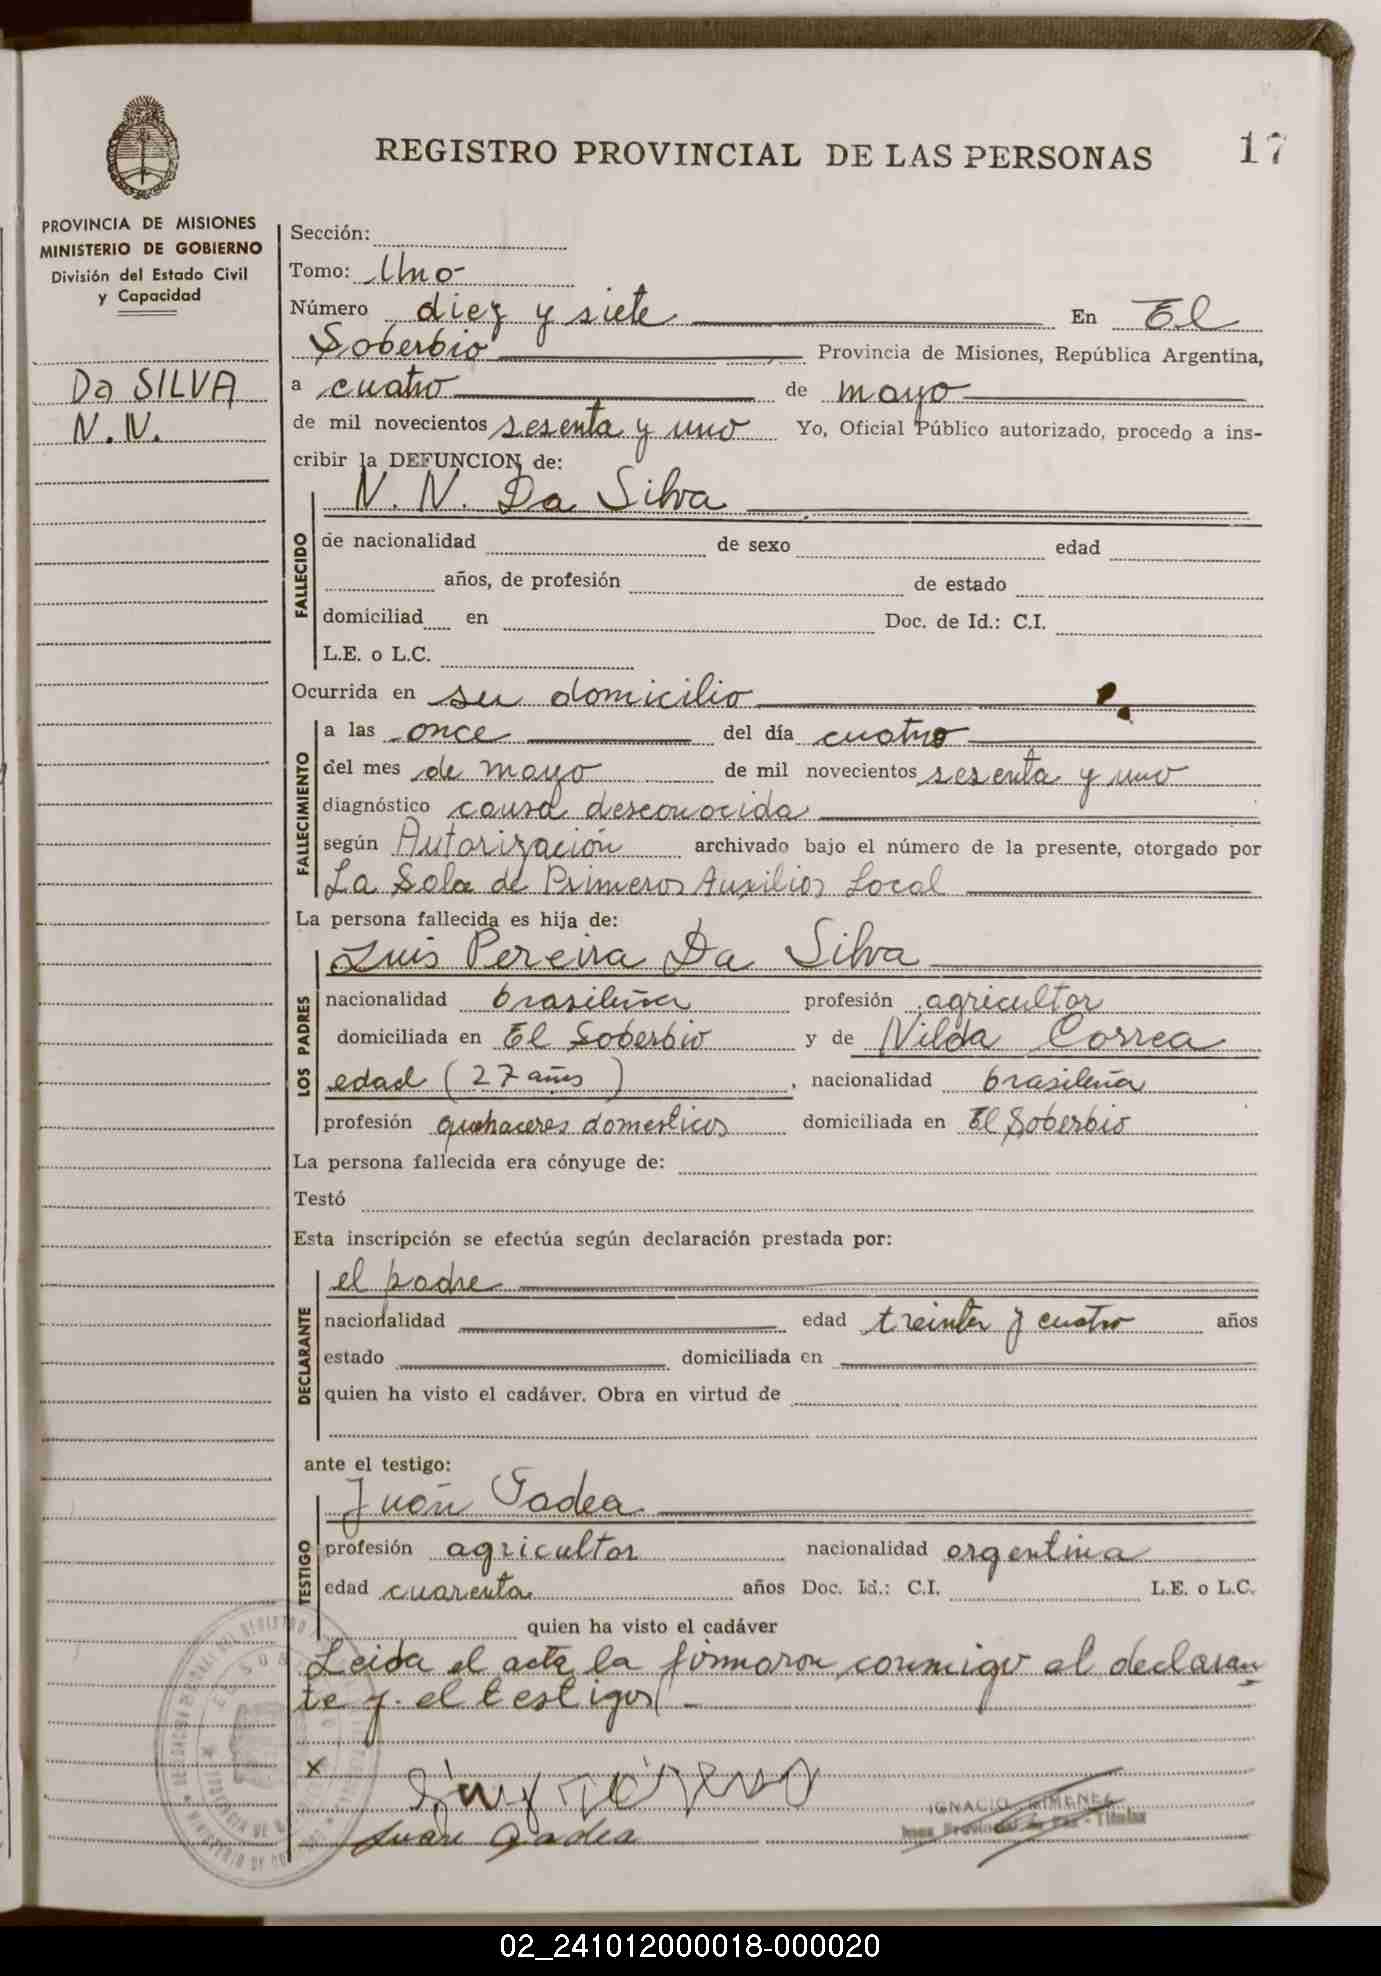 REGISTRO PROVINCIAL DE LAS PERSONAS
17
PROVINCIA DE MISIONES
MINISTERIO DE GOBIERNO
División del Estado Civil
y Capacidad
Da SILVA
N. N.
Sección:
Tomo: Uno
Número diez y siete En El
Soberbio Provincia de Misiones, República Argentina,
a cuatro de mayo
de mil novecientos sesenta y uno Yo, Oficial Público autorizado, procedo a ins-
cribir la DEFUNCION de:
N. N. Da Silva
FALLECIDO
de nacionalidad de sexo edad
años, de profesión de estado
domiciliad en Doc. de Id.: C.I.
L.E. o L.C.
Ocurrida en su domicilio
FALLECIMIENTO
a las once del día cuatro
del mes de mayo de mil novecientos sesenta y uno
diagnóstico causa desconocida
según Autorización archivado bajo el número de la presente, otorgado por
La Sala de Primeros Auxilios Local
La persona fallecida es hija de:
LOS PADRES
Luis Pereira Da Silva
nacionalidad brasileña profesión agricultor
domiciliada en El Soberbio y de Nilda Correa
edad (27 años), nacionalidad brasileña
profesión quehaceres domesticos domiciliada en El Soberbio
La persona fallecida era cónyuge de:
Testó
Esta inscripción se efectúa según declaración prestada por:
DECLARANTE
el padre
nacionalidad edad treinta y cuatro años
estado domiciliada en
quien ha visto el cadáver. Obra en virtud de
ante el testigo:
TESTIGO
Juan Gadea
profesión agricultor nacionalidad argentina
edad cuarenta años Doc. Id.: C.I. L.E. o L.C.
quien ha visto el cadáver
Leida el acta la firmaron conmigo el declaran
te y el testigos -
x
Juan Gadea
IGNACIO GIMENEZ
02_241012000018-000020